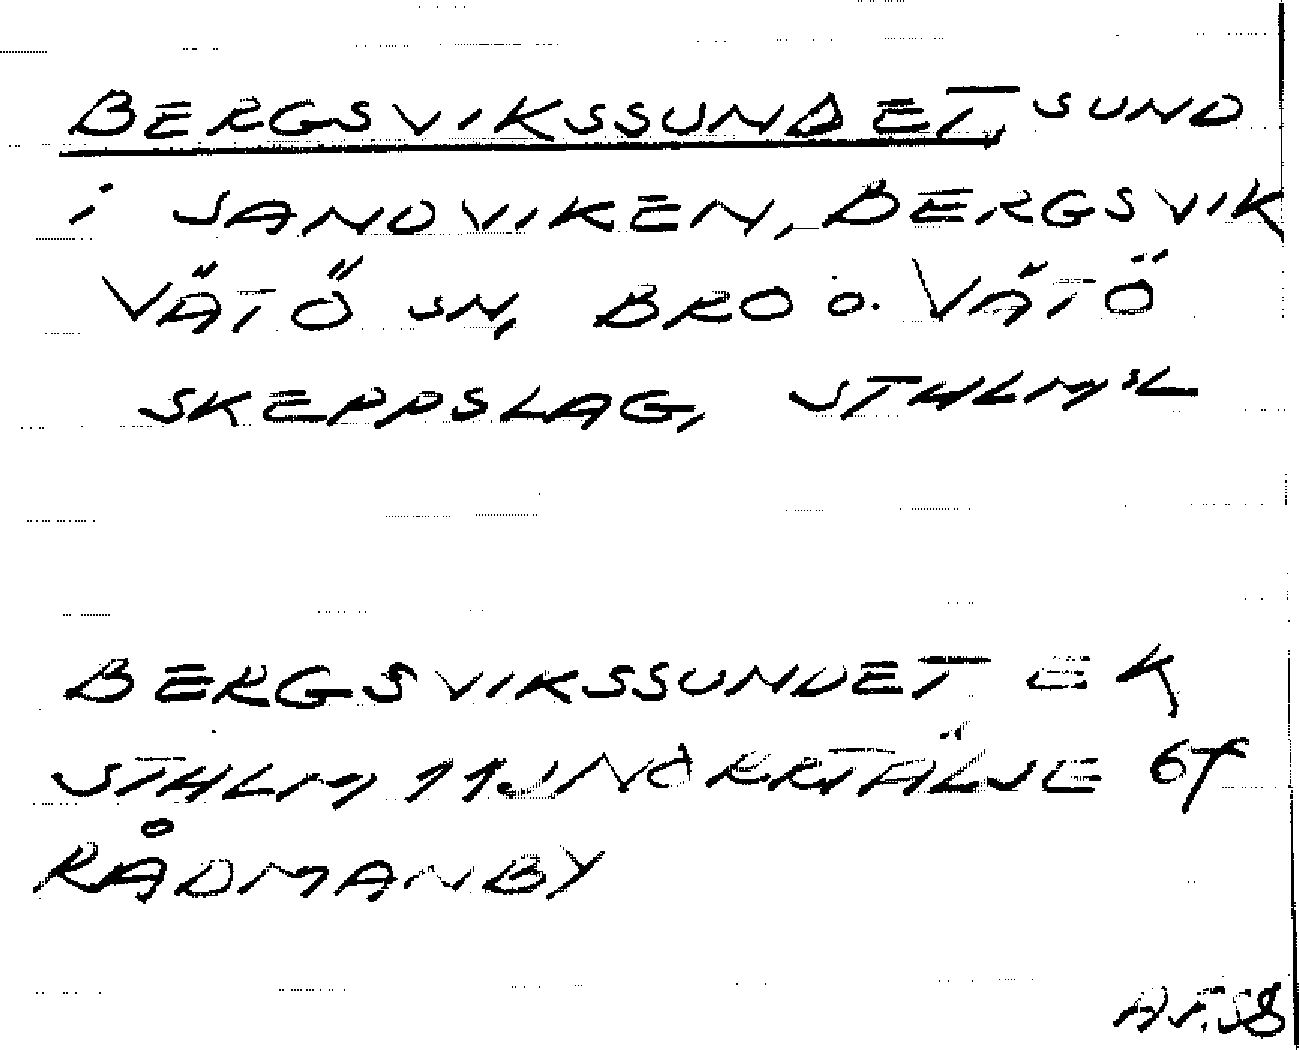 BERGSVIKSSUNDET, SUND
i SANDVIKEN, BERGSVIK
VÄTÖ SN, BRO O. VÄTÖ
SKEPPSLAG, STHLM'L
BERGSVIKSSUNDET EK
STHLM 11J NORRTÄLJE 67
RÅDMANBY